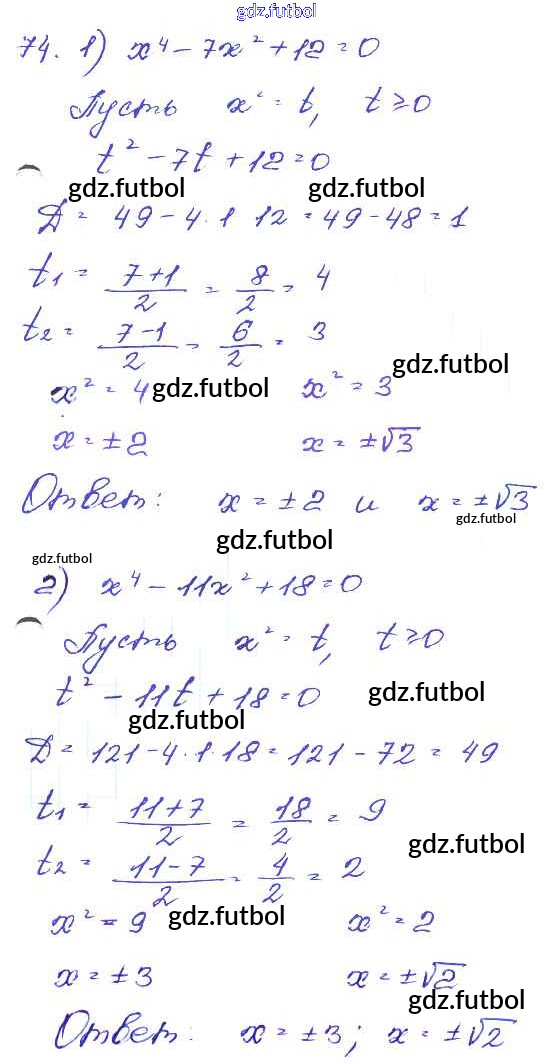 gdz.futbol
74. 1) x⁴ - 7x² + 12 = 0
Пусть x² = t, t ≥ 0
t² - 7t + 12 = 0
gdz.futbol gdz.futbol
D = 49 - 4 · 1 12 = 49 - 48 = 1
t₁ = (7+1)/2 = 8/2 = 4
t₂ = (7-1)/2 = 6/2 = 3
gdz.futbol
x² = 4 gdz.futbol x² = 3
x = ±2 x = ±√3
Ответ: x = ±2 и x = ±√3
gdz.futbol
gdz.futbol
gdz.futbol
2) x⁴ - 11x² + 18 = 0
Пусть x² = t, t ≥ 0
t² - 11t + 18 = 0 gdz.futbol
gdz.futbol
D = 121 - 4 · 1 · 18 = 121 - 72 = 49
t₁ = (11+7)/2 = 18/2 = 9
gdz.futbol
t₂ = (11-7)/2 = 4/2 = 2
x² = 9 gdz.futbol x² = 2
x = ±3 x = ±√2
gdz.futbol
Ответ: x = ±3; x = ±√2